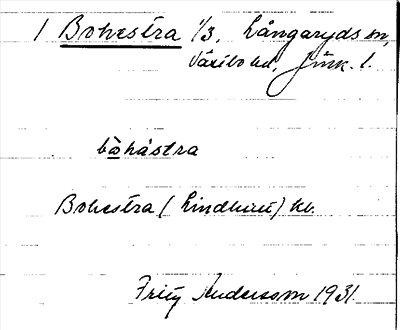 1 Bohestra 1/3, Långaryds sn,
Västbo hd, Jönk. l.
bòhǻstra
Bohestra (Lindhult) kb.
Fritz Andersson 1931.